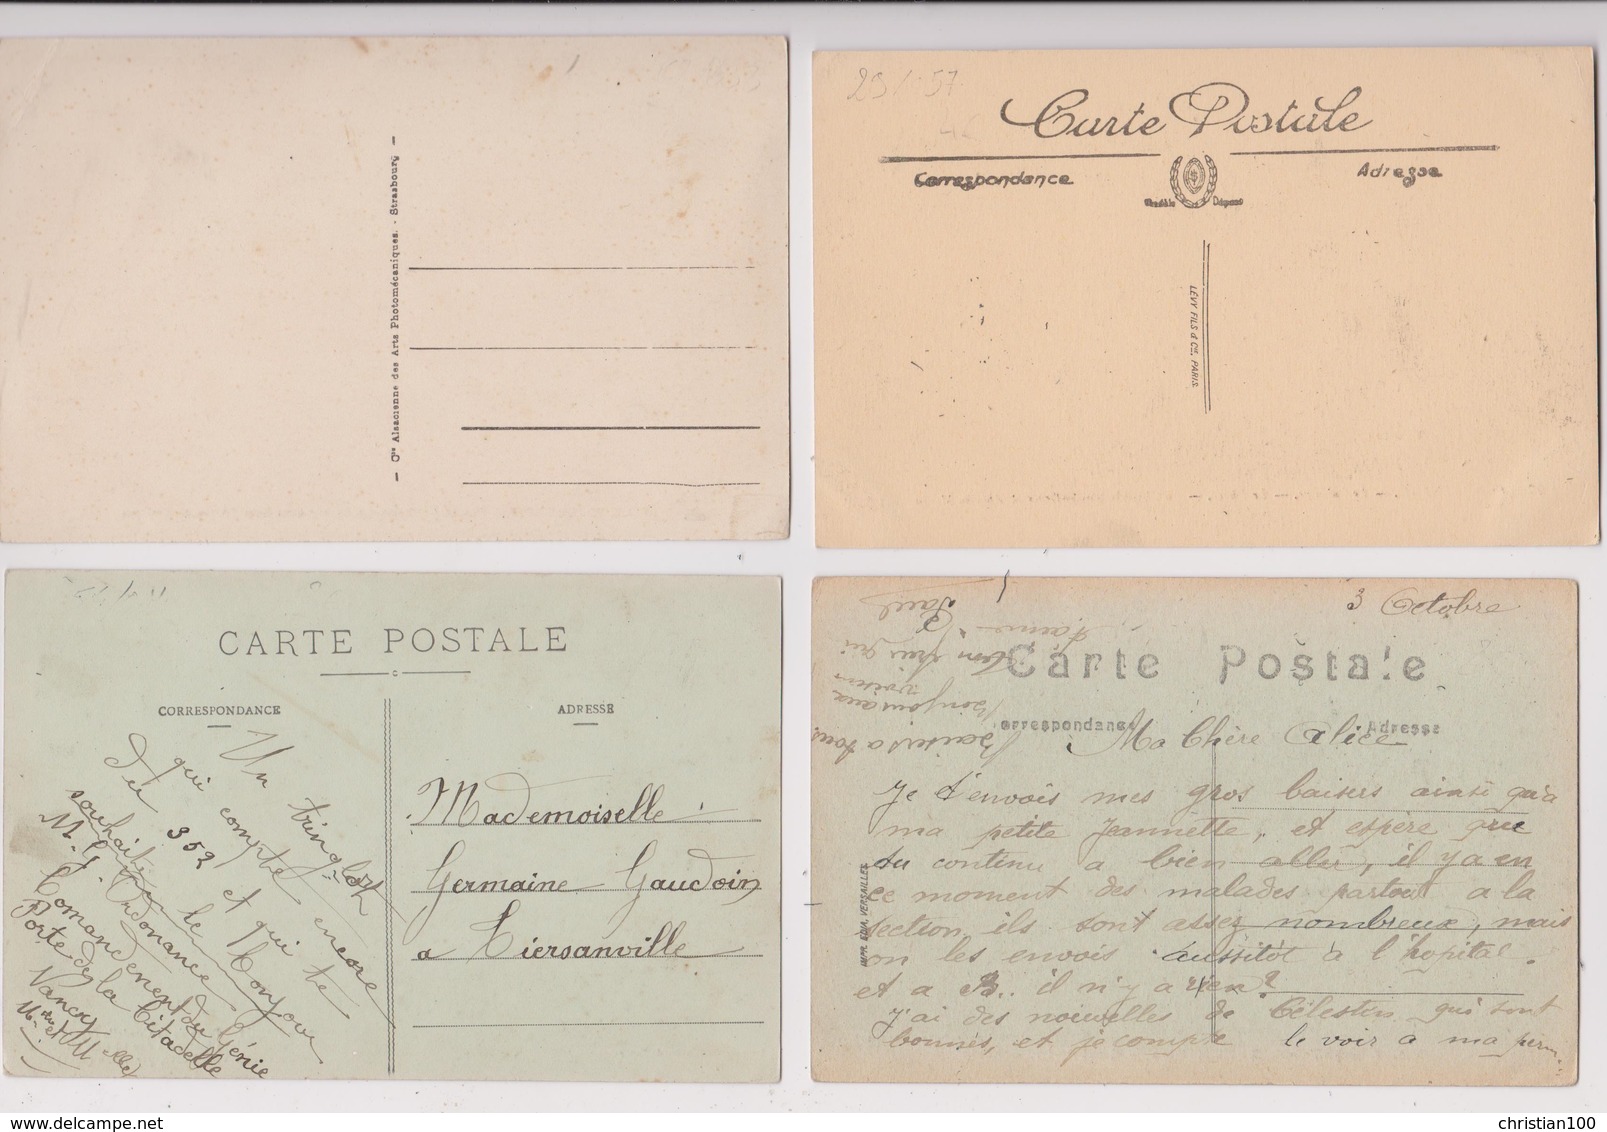 - Cie Alsacienne des Arts Photomécaniques. - Strasbourg -
29/ 57
Carte Postale
Correspondance
Adresse
LÉVY FILS & Cie, PARIS.
CARTE POSTALE
CORRESPONDANCE
ADRESSE
Un tringlot
qui compte encore
du 352 et qui te
souhaite le bonjour
Ordonance
Comandement du Génie
Porte de la Citadelle
Nancy
M et M elle
Mademoiselle
Germaine Gaudoin
a Liersanville
3 Octobre
Carte Postale
orrespondance
Adresse
Ma Chère Alice
Je t'envois mes gros baisers ainsi qu'a
ma petite Jeannette, et espère que
tu continu a bien aller, il y a en
ce moment des malades partout a la
section, ils sont assez nombreux, mais
on les envois aussitôt à l'hopital.
et a B.. il n'y a rien?
j'ai des nouvelles de Célestin qui sont
bonnes, et je compte le voir a ma perm.
Baisers a tous
Bonjour aux
voisins
bon
qui
t'aime
Paul
IMPR. EDIA, VERSAILLES
delcampe.net
christian100